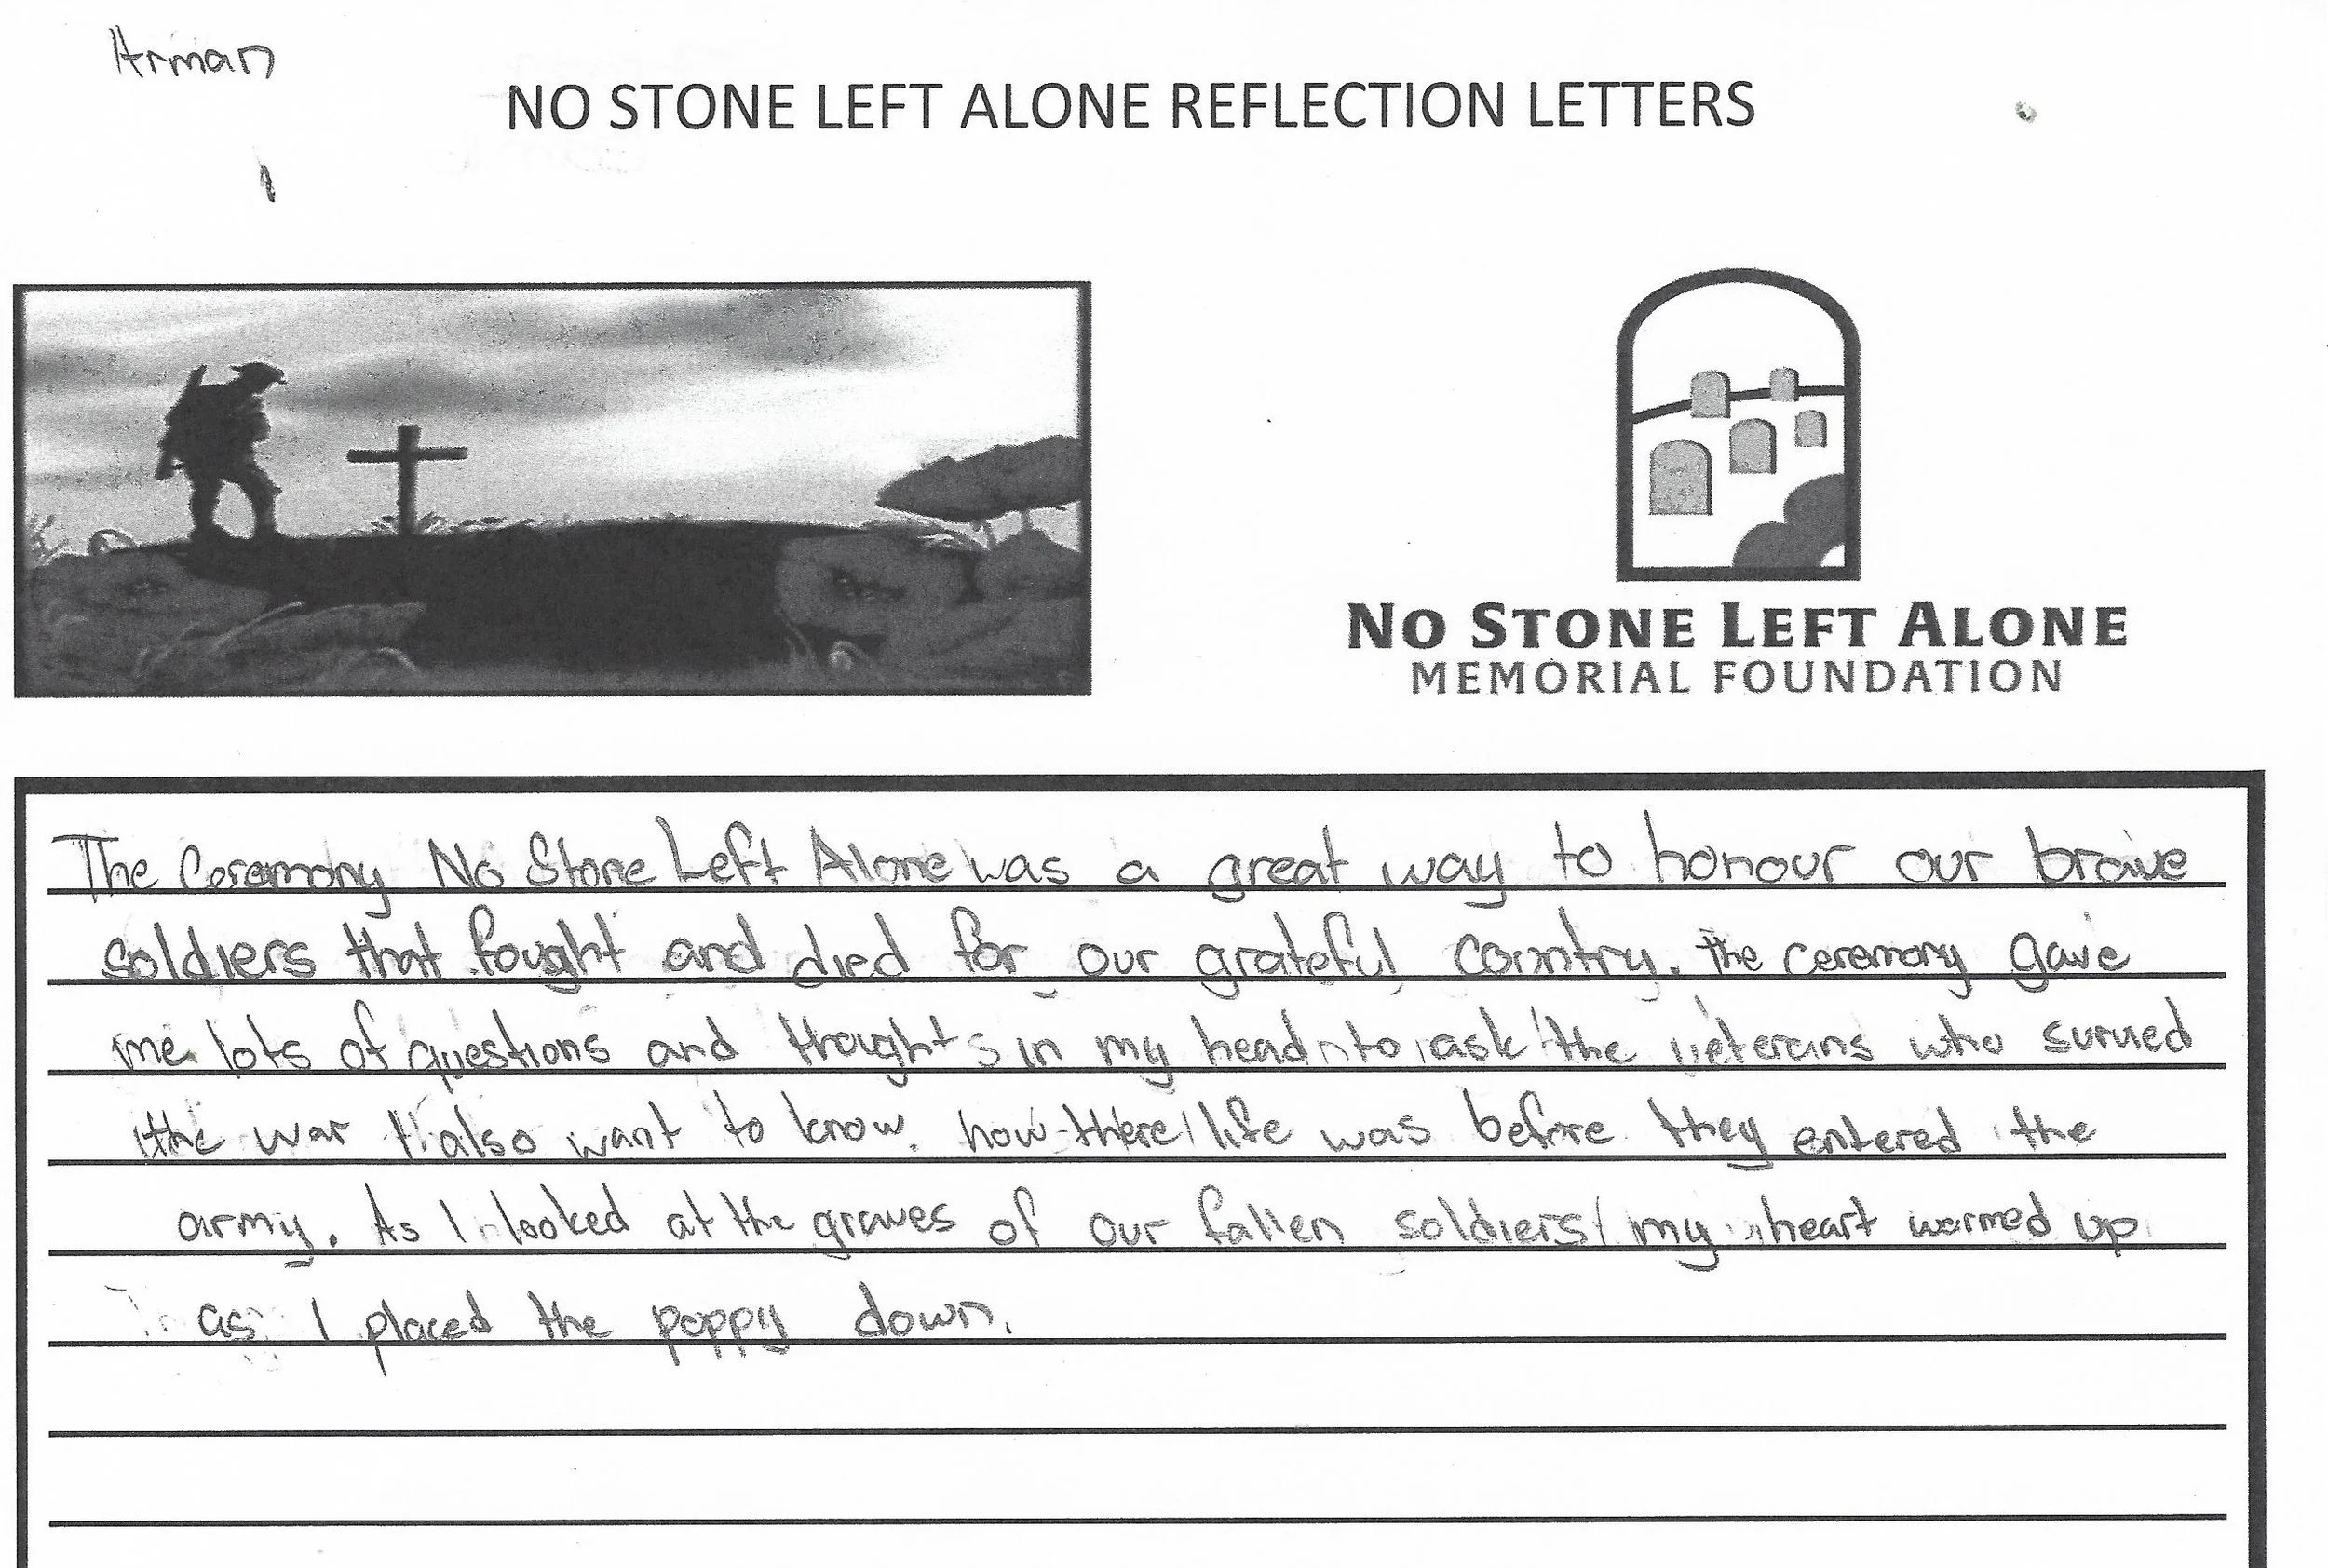 Arman
NO STONE LEFT ALONE REFLECTION LETTERS
NO STONE LEFT ALONE
MEMORIAL FOUNDATION
The Ceremony No Stone Left Alone was a great way to honour our brave
soldiers that fought and died for our grateful country. the ceremony gave
me lots of questions and thoughts in my head to ask the veterans who
the war I also want to know how there life was before they entered the
army. As I looked at the graves of our fallen soldiers my heart warmed up
as I placed the poppy down.